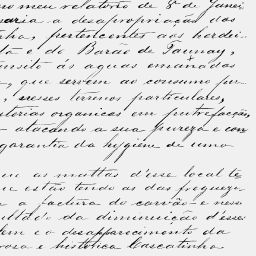 no meu relatorio de 8 de Janei
naria a desapropriação dos
nha, pertencentes aos herdei
tá e do Barão de Taunay,
ansito ás aguas emanadas
, que servem ao consumo pu
, nesses terrenos particulares,
materias organicas em putrefacção,
atacando a sua pureza e com
garantia da hygiene de uma
as mattas d'esse local te
ue estão tendo as das freguezi
a factura do carvão e
ultado da diminuição d'essa
tem e o desapparecimento da
rosa e historica Cascatinha